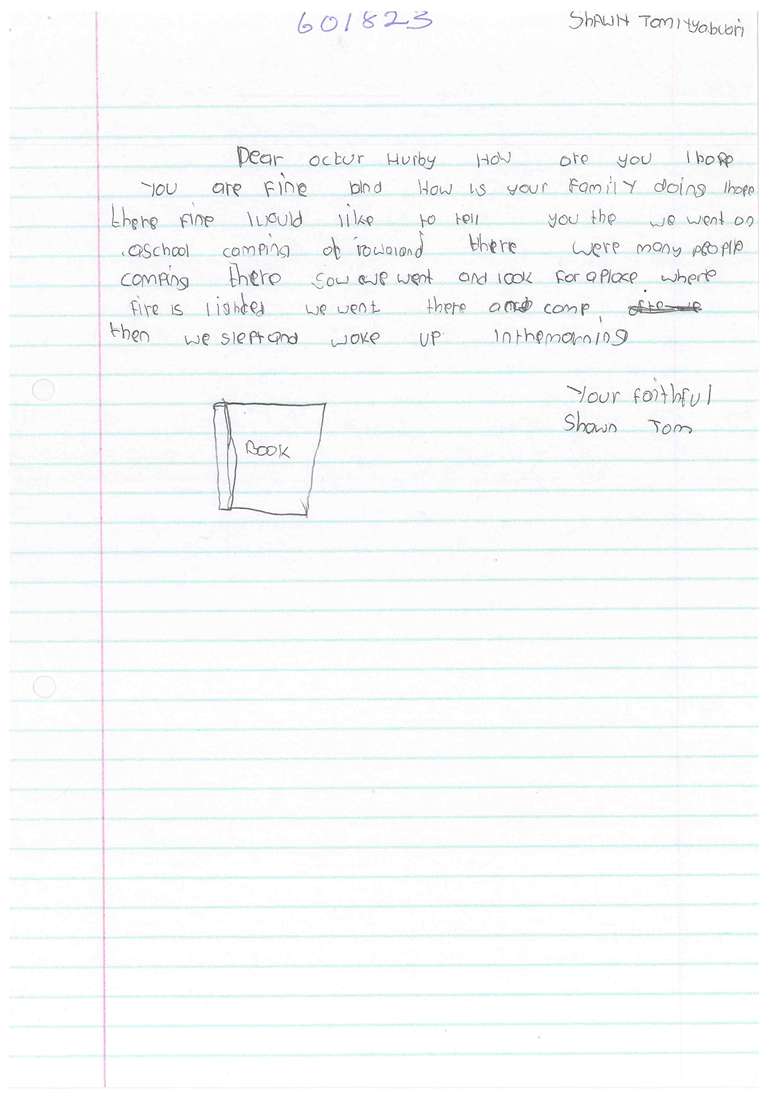 601823
SHAWN Tominyabwori
Dear octur Hurby How are you Ihope
you are fine and How is your family doing Ihope
there fine Iwould like to tell you the we went on
aschool camping at rowaland there were many people
camping there sow we went and look for aplace where
fire is lighted we went there and camp
then we sleptand woke up inthemorning
Your faithful
Shawn Tom
BOOK